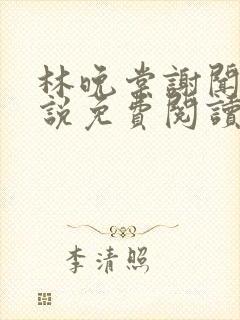 林晚棠謝聞
說免費閱讀
李清照